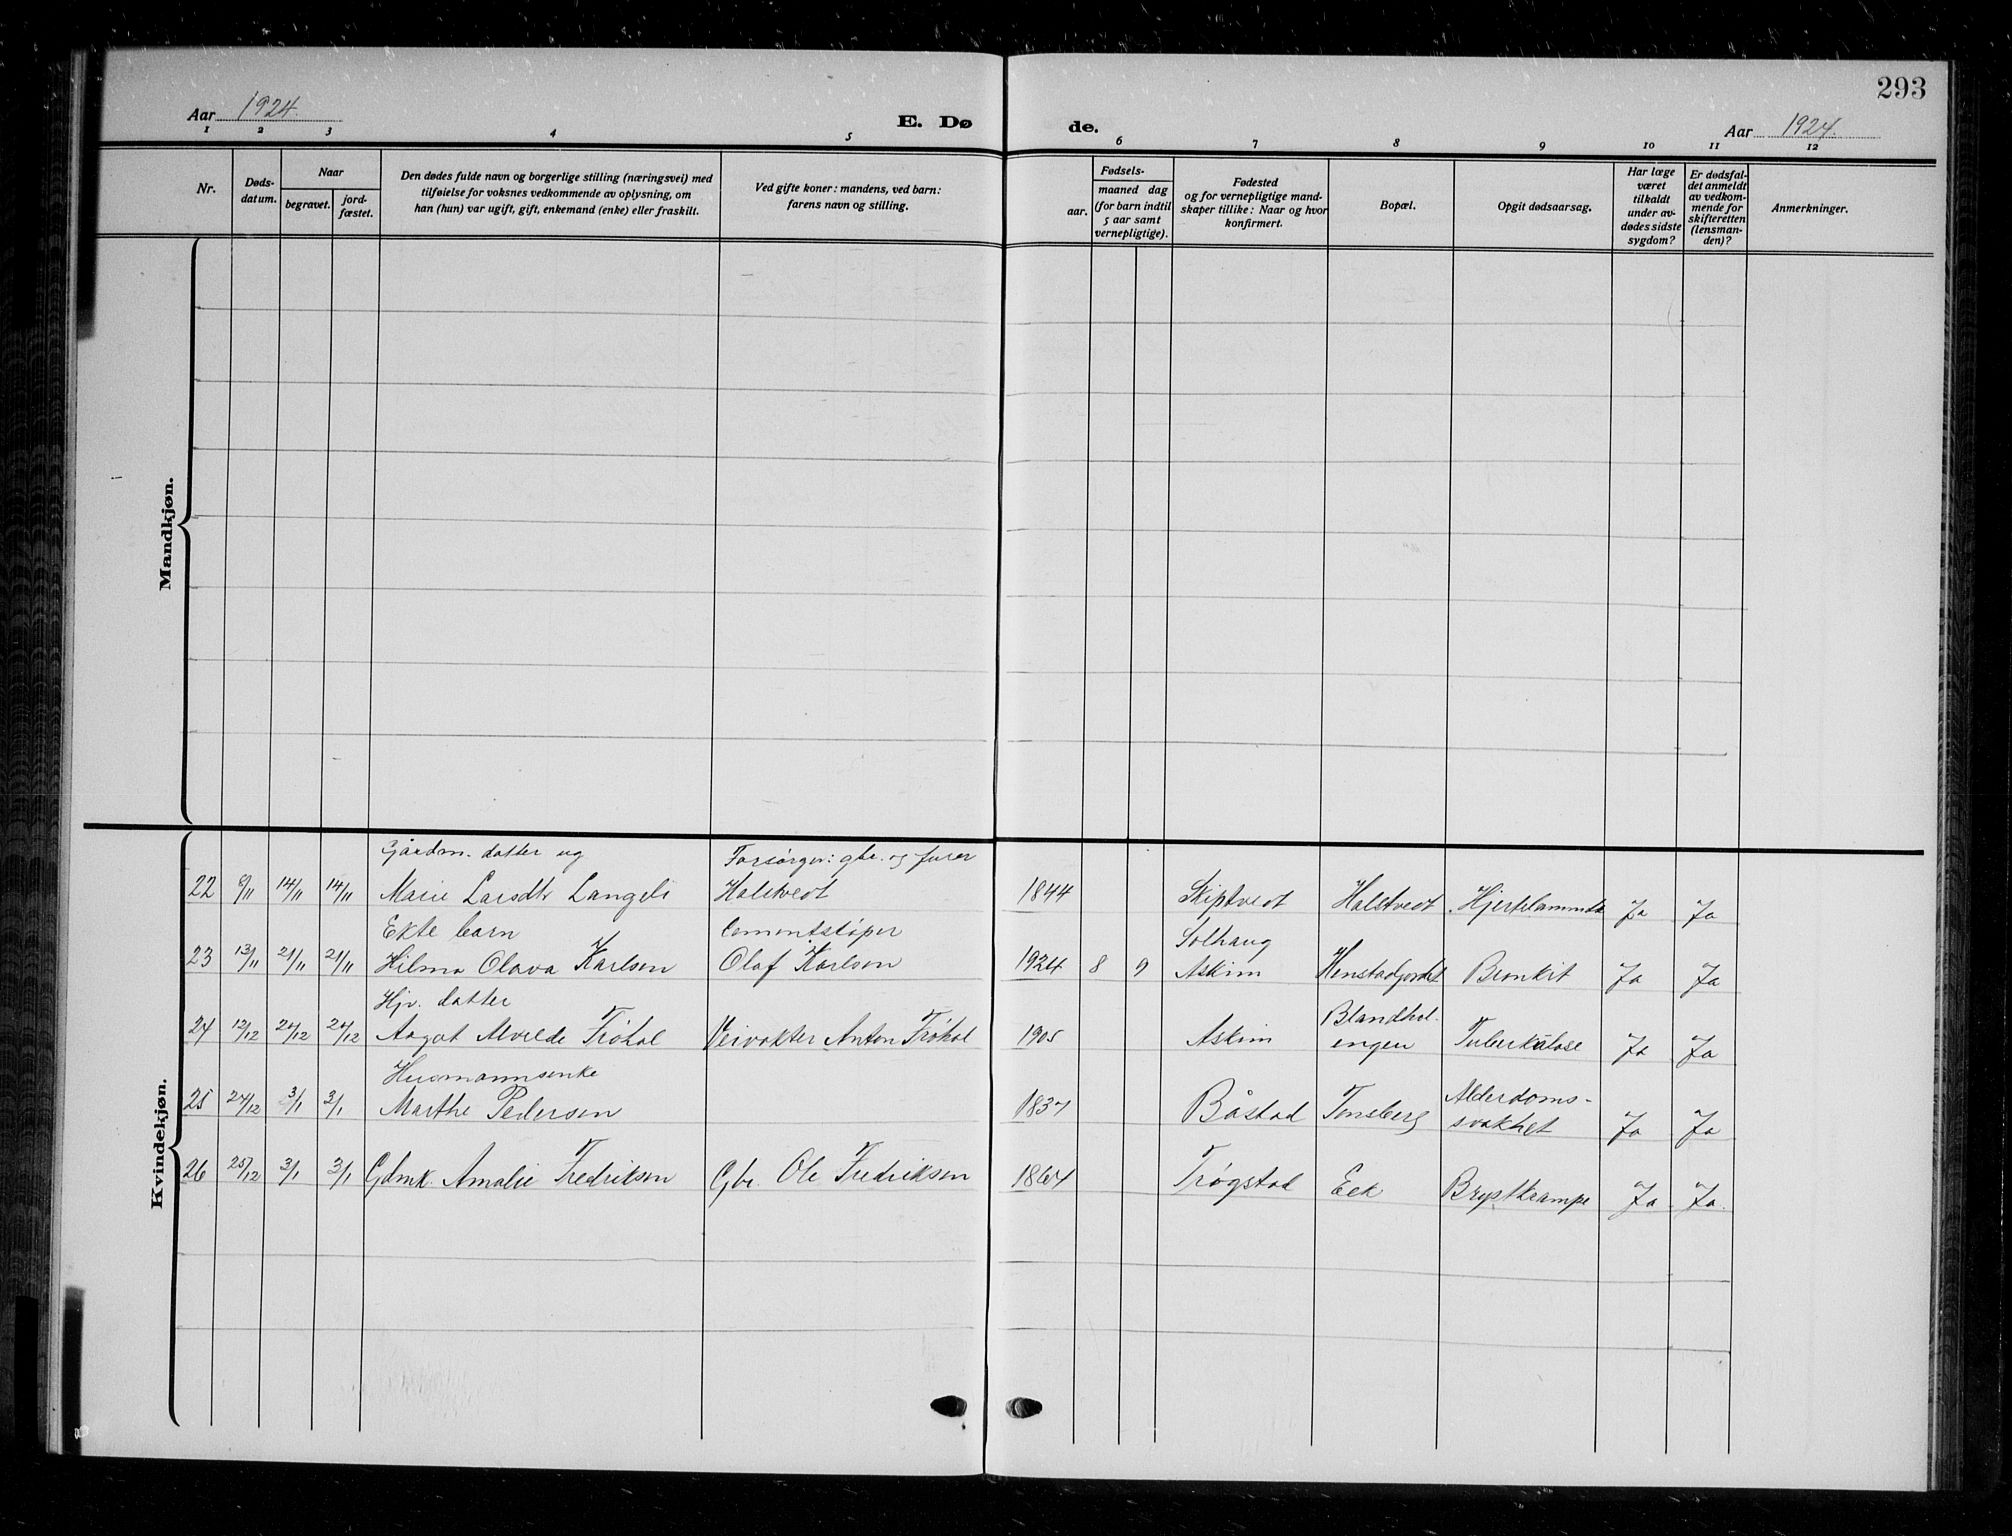 293
Aar 1924.
E. Dø
de.
Aar 1924.
1 2 3 4 5 6 7 8 9 10 11 12
Nr.
Døds-
datum.
Naar
begravet.
jord-
fæstet.
Den dødes fulde navn og borgerlige stilling (næringsvei) med
tilføielse for voksnes vedkommende av oplysning, om
han (hun) var ugift, gift, enkemand (enke) eller fraskilt.
Ved gifte koner: mandens, ved barn:
farens navn og stilling.
Fødsels-
aar.
maaned dag
(for barn indtil
5 aar samt
vernepligtige).
Fødested
og for vernepligtige mand-
skaper tillike: Naar og hvor
konfirmert.
Bopæl.
Opgit dødsaarsag.
Har læge
været
tilkaldt
under av-
dødes sidste
sygdom?
Er dødsfal-
det anmeldt
av vedkom-
mende for
skifteretten
(lensman-
den)?
Anmerkninger.
Mandkjøn.
Kvindekjøn.
Gårdm. datter ug Forsørger: gbr. og furer
22 8/11 14/11 14/11 Marie Larsdtr Langeli Halstvedt 1844 Skiptvedt Halstvedt Hjertelammelse Ja Ja
Ekte barn Cementstøper Solhaug
23 13/11 21/11 21/11 Hilma Olava Karlsen Olaf Karlsen 1924 8 9 Askim Henstadjordet Bronkit Ja Ja
Hjv. datter Blandhol-
24 12/12 24/12 24/12 Aagot Alvilde Trøhol Veivokter Anton Trøhol 1905 Askim engen Tuberkulose Ja Ja
Husmannsenke Alderdoms-
25 24/12 3/1 3/1 Marthe Pedersen 1837 Båstad Tonsberg svakhet Ja Ja
26 25/12 3/1 3/1 Gdmk. Amalie Fredriksen Gbr. Ole Fredriksen 1864 Trøgstad Eek Brystkrampe Ja Ja.